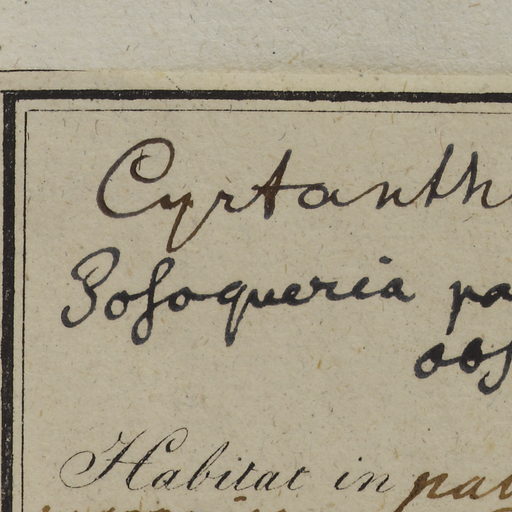 Cyrtanth
Posoqueria pa
obs
Habitat in pal